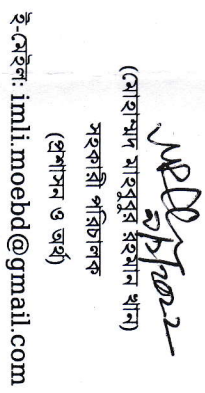 ৯/১/২০২২
(মোহাম্মদ মাহবুবুর রহমান খান)
সহকারী পরিচালক
(প্রশাসন ও অর্থ)
ই-মেইল: imli.moebd@gmail.com